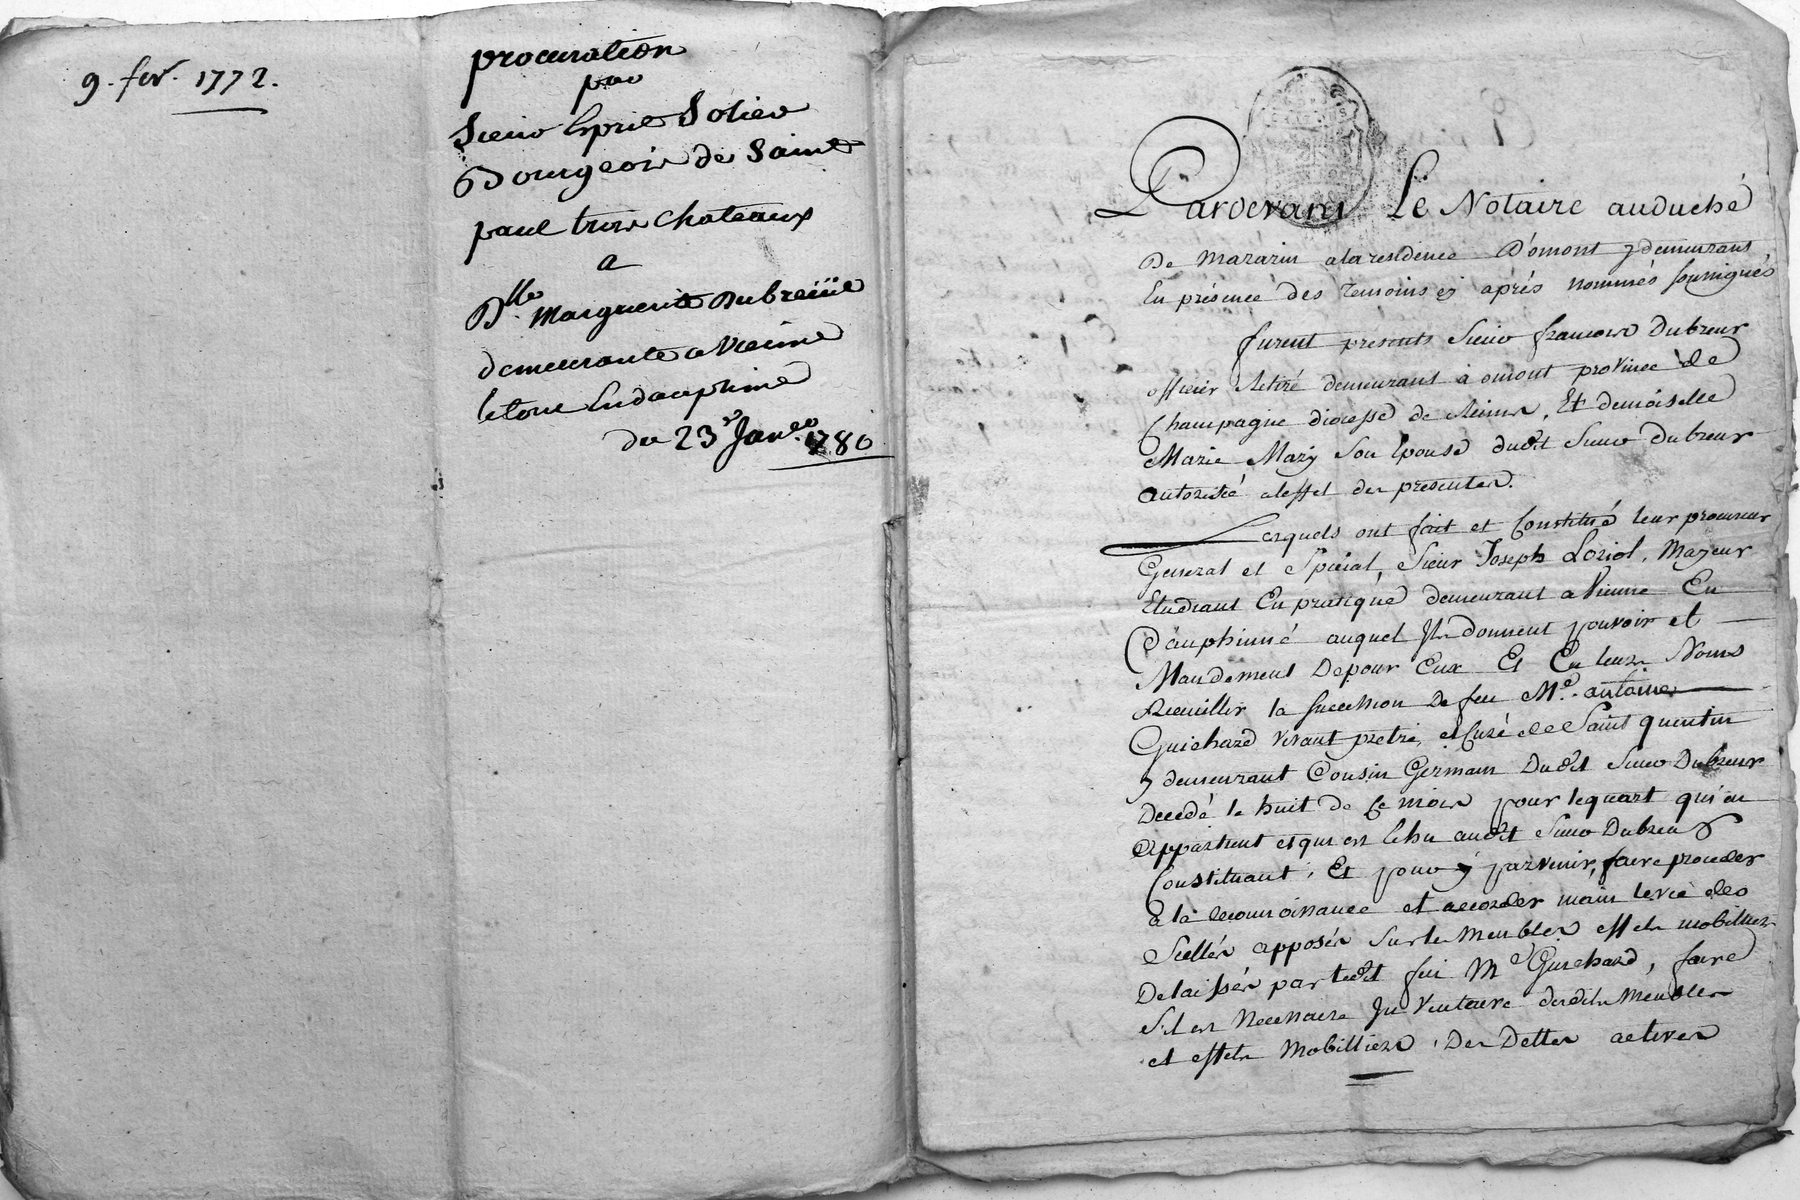 9. fev. 1772.
procuration
par
Sieur Esprit Solier
Bourgeois de Saint
paul trois chateaux
a
Dlle Marguerite Dubreüil
demeurante a Vienne
le tout En dauphiné
du 23e Janer 1780
Pardevant Le Notaire auduché
De Mazarin ala residence D'omont y demeurant
En présence des Temoins cy après nommés soussignés
furent presents Sieur francois Dubreur
officier Retiré demeurant à omont province de
Champagne diocesse de Reims, Et demoiselle
Marie Mary Son Epouse dudit Sieur Dubreur
autorisée aleffet des presentes.
Lesquels ont fait et Constitué leur procureur
General et Special, Sieur Joseph Loriol, Majeur
Etudiant En pratique demeurant a Vienne En
Dauphinné auquel Ils donnent pouvoir et
Mandement De pour Eux Et En leurs Noms
Recueillir la succession De feu Me. antoine
Guichard vivant pretre, et Curé de Saint quentin
y demeurant Cousin Germain Dudit Sieur Dubreur
Decedé le huit de Ce mois pour le quart qui en
Appartient et qui est Echu audit Sieur Dubreur
Constituant, Et pour y parvenir, faire proceder
à la reconnoissance et accorder main levée des
Scellés apposés Sur les Meubles effets mobilliers
Delaissés par ledit feu Me Guichard, faire
S'il est Necessaire Inventaire desdits Meubles
et effets Mobilliers, Des Dettes actives